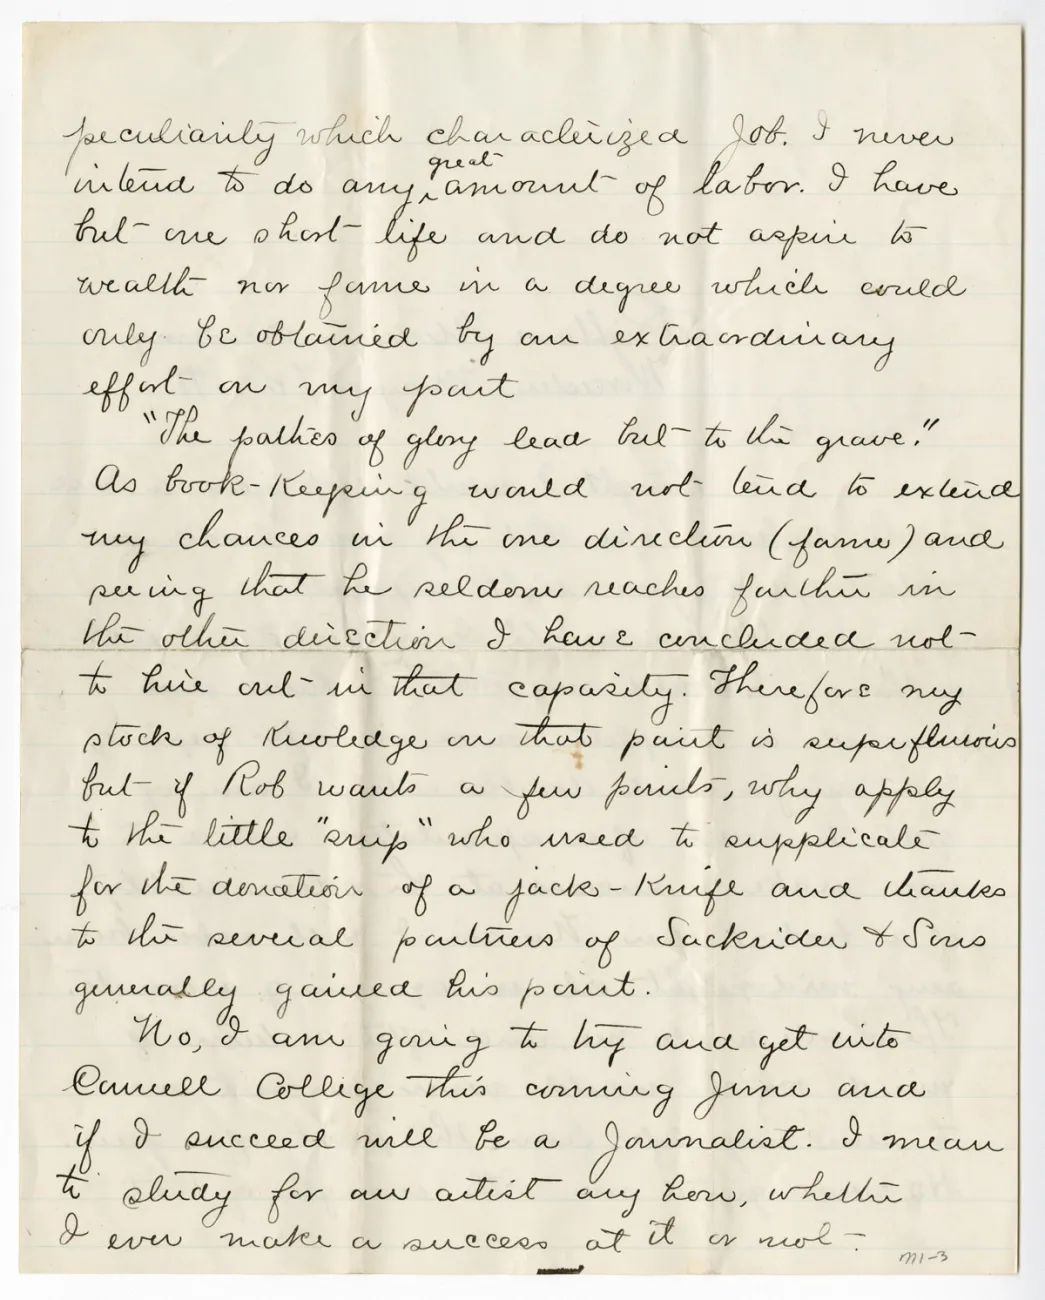 peculiarity which characterized Job. I never
great
intend to do any ‸ amount of labor. I have
but one short life and do not aspire to
wealth nor fame in a degree which could
only be obtained by an extraordinary
effort on my part
"The pathes of glory lead but to the grave."
As book-keeping would not tend to extend
my chances in the one direction (fame) and
seeing that he seldom reaches farther in
the other direction I have concluded not
to hire out in that capasity. Therefore my
stock of knowledge on that point is superfluous
but if Rob wants a few points, why apply
to the little "snip" who used to supplicate
for the donation of a jack-knife and thanks
to the several partners of Sackrider & Sons
generally gained his point.
No, I am going to try and get into
Cornell College this coming June and
if I succeed will be a Journalist. I mean
to study for an artist any how, whether
I ever make a success at it or not-
M1-3